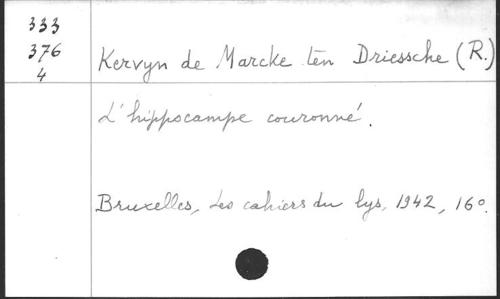 333
376
4
Kervyn de Marcke ten Driessche (R.)
L'hippocampe couronné.
Bruxelles, Les cahiers du lys, 1942, 16°.